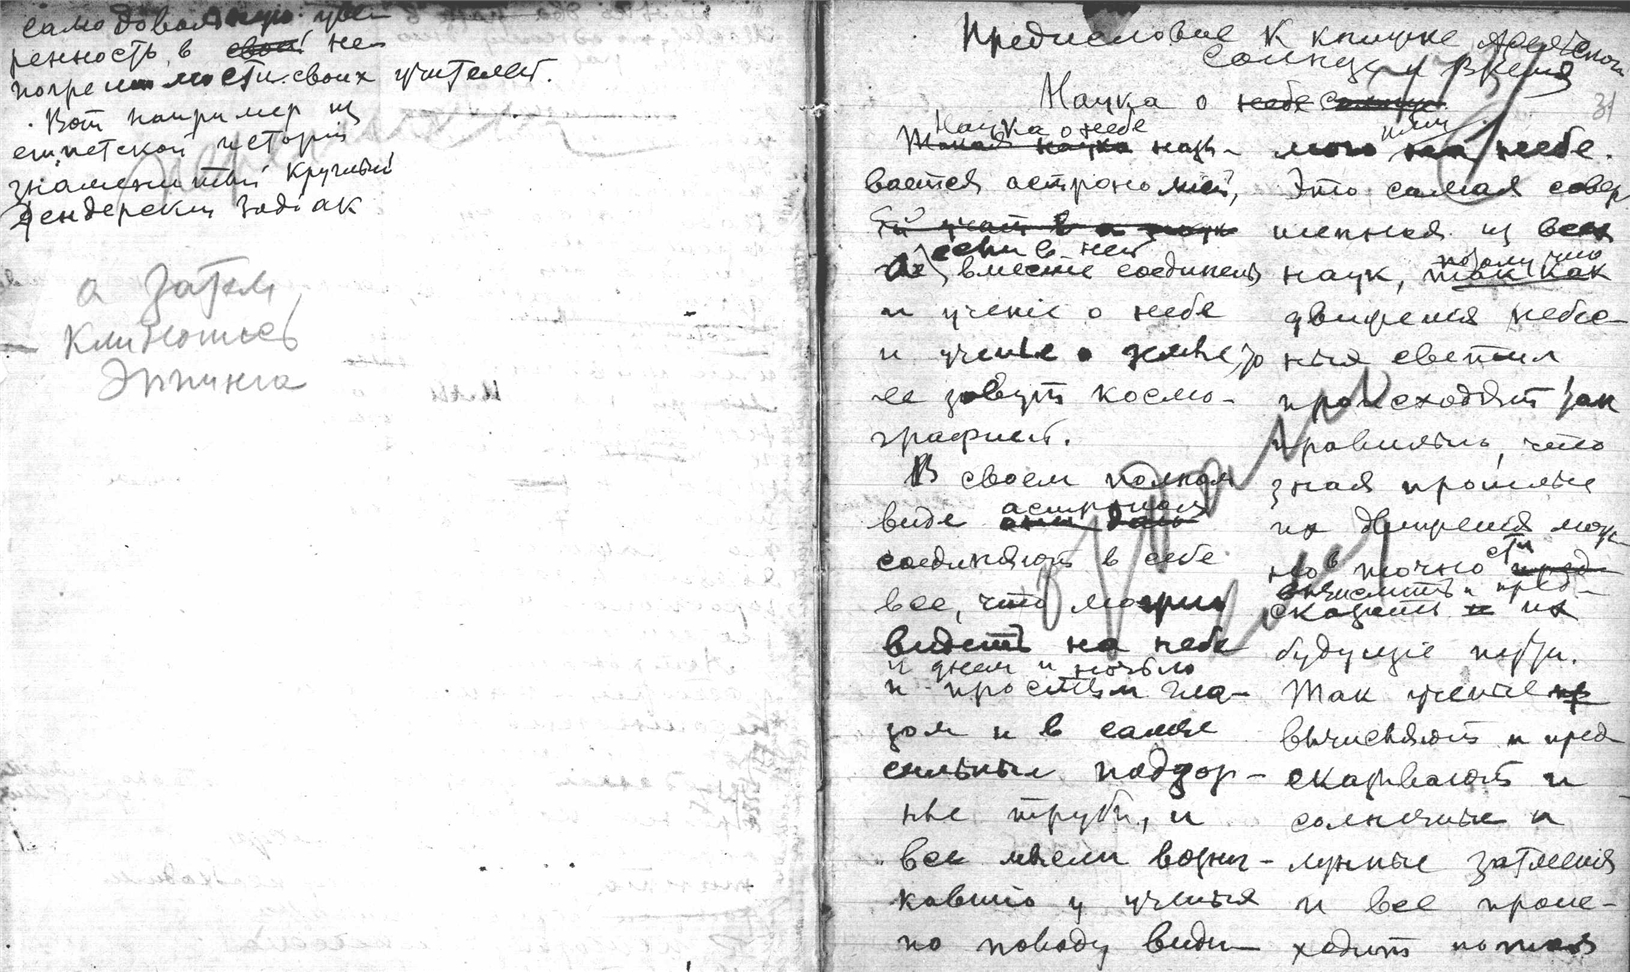 самодовольную уве-
ренность в свои не-
погрешимости своих учителей.
Вот например из
египетской истории
знаменитый круглый
Дендерский зодiак
а затем
клинопись
Эппинга
Предисловие к книжке
Солнце и время
31
Наука о небе солнце
Наука о небе
наука назы-
вается астрономией,
если в ней
вместе соединены
и ученiе о небе
и ученье о земле, то
ее зовут космо-
графией.
В своем полном
астрономия
виде они
соединяют в себе
все, что можно
видеть на небе
и днем и ночью
и простым гла-
зом и в самые
сильные подзор-
ные трубы, и
все мысли возни-
кавшiе у ученых
по поводу види-
мого на небе.
Это самая совер
шенная из всех
потому что
наук, так как
движения небес-
ных светил
происходят так
правильно, что
зная прошлые
их движения мож-
сти
но в точно
вычислить и пред-
сказать и их
будущiе пути.
Так ученые
вычисляют и пред
сказывают и
солнечные и
лунные затмения
и все проис-
ходит по